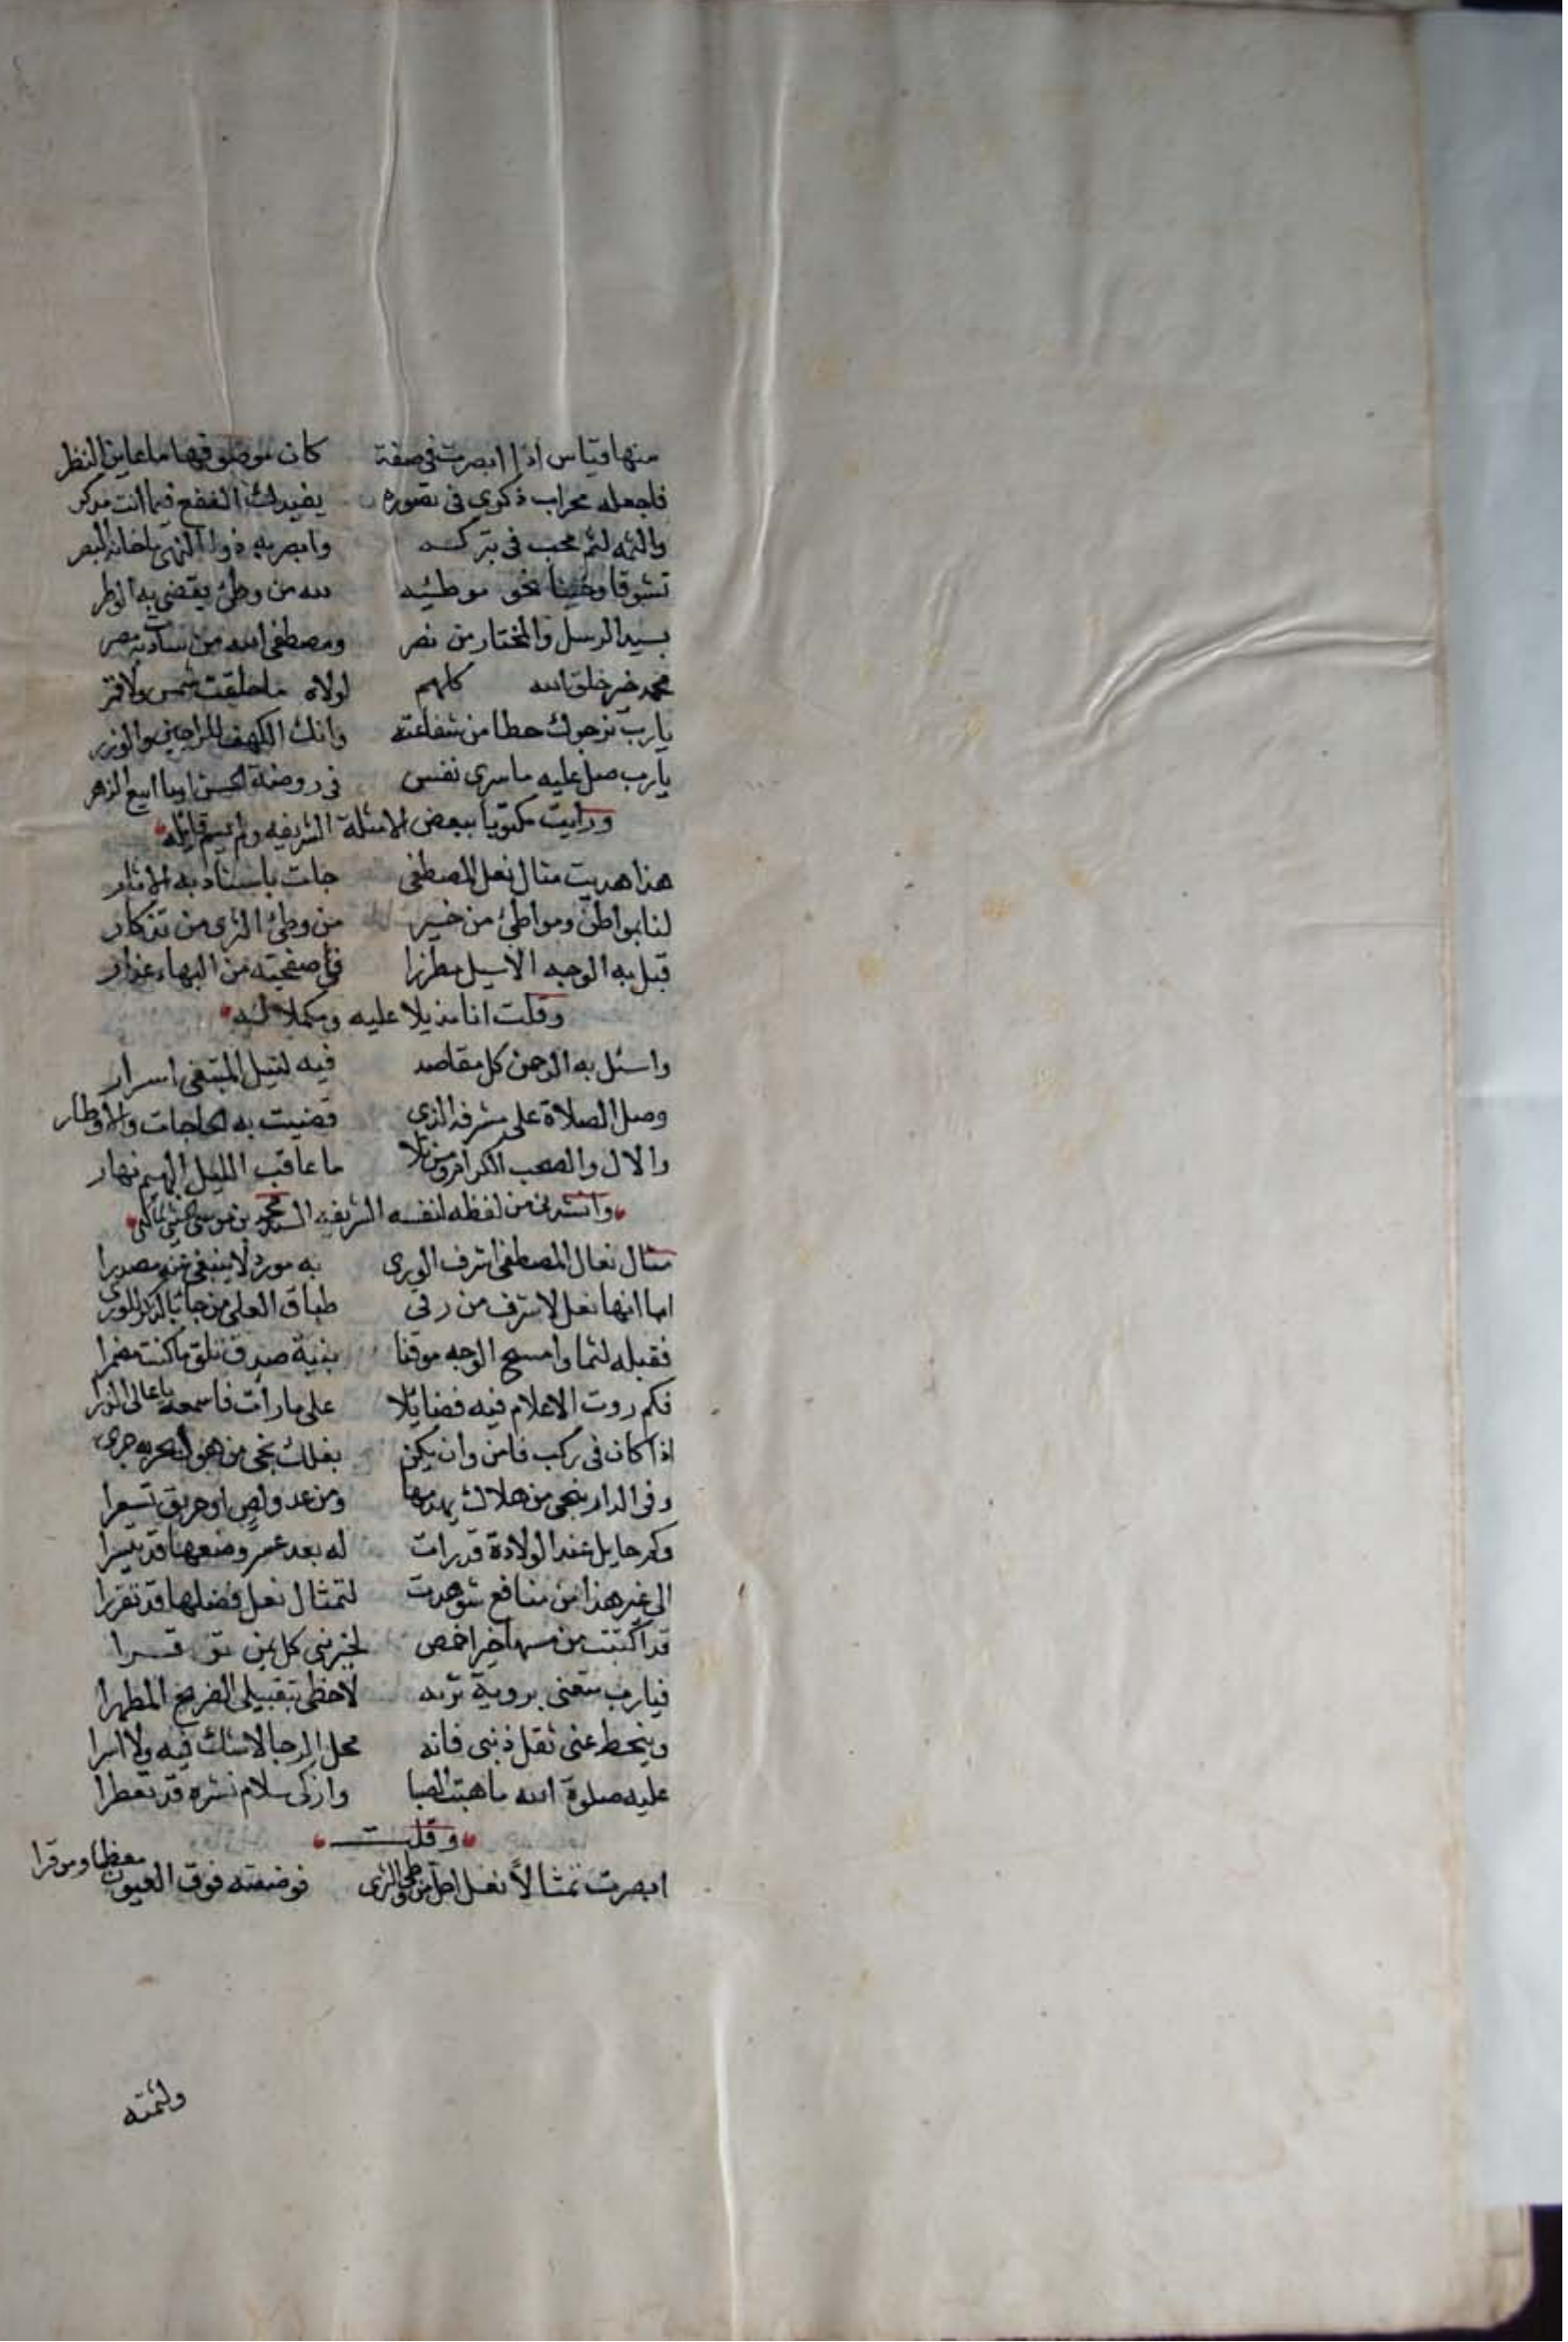 منها قياس اذا ابصرت في صفة كان موصوفها ما عاين النظر
فاجعله محراب ذكرى في تصوره يفيدك النفع فيما انت مدكر
والثمه لثم محب في تبركه وابصر به ذوا النهى ما خانه البصر
تشوقا وحنينا نحو موطئه لله من وطئ يقضى به الوطر
بسيد الرسل والمختار من نصر ومصطفى الله من سادت به مضر
محمد خير خلق الله كلهم لولاه ما خلقت شمس ولا قمر
يارب نرجوك حظا من شفاعته وانك الكهف للراجين والوزر
يارب صل عليه ما سرى نفس في روضة الحسن او ما اينع الزهر
ورايت مكتوبا ببعض الامثلة الشريفه ولم يسم قايله
هذا هديت مثال نعل المصطفى جات باسناد به الاثار
لنا بمواطن ومواطئ من خير من وطئ الثرى من تذكار
قبل به الوجه الاسيل مطرزا في صفحيته من البهاء عذار
وقلت انا مذيلا عليه ومكملا له
واسئل به الرحمن كل مقاصد فيه لنيل المبتغى اسرار
وصل الصلاة على مشرفه الذي قضيت به الحاجات والاوطار
والال والصحب الكرام ومن تلا ما عاقب الليل البهيم نهار
وانشدنى من لفظه لنفسه الشريف السيد محمد بن موسى
مثال نعال المصطفى اشرف الورى به مورد لا ينبغي عنه مصدرا
اما انها نعل لاشرف من رقى طباق العلى من جا للورى
فقبله لثما وامسح الوجه موقنا بنية صدق تلق ما كنت مضمرا
فكم روت الاعلام فيه فضايلا على ما رات فاسمعه يا عالى الذرا
اذا كان في ركب فامن وان يكن بفلك نجى من هول بحر به جرى
وفي الدار ينجى من هلاك يهدمها ومن عدو ولص او حريق تسعرا
وكم حايل عند الولادة قد رات له بعد عسر وضعها قد تيسرا
الى غير هذا من منافع شوهدت لتمثال نعل فضلها قد تقررا
قد اكتبت من مسها خير اخمص لخير نبى كل يمن توقرا
فيارب متعنى بروية تربه لاحظى بتقبيلى الضريح المطهرا
وينحط عنى ثقل ذنبى فانه محل الرجا لاشك فيه ولا امرا
عليه صلوة الله ما هبت الصبا وازكى سلام نشره قد تعطرا
وقلت
ابصرت تمثالا لنعل اجل من وطئ الثرى فوضعته فوق العيون معظما وموقرا
ولثمته